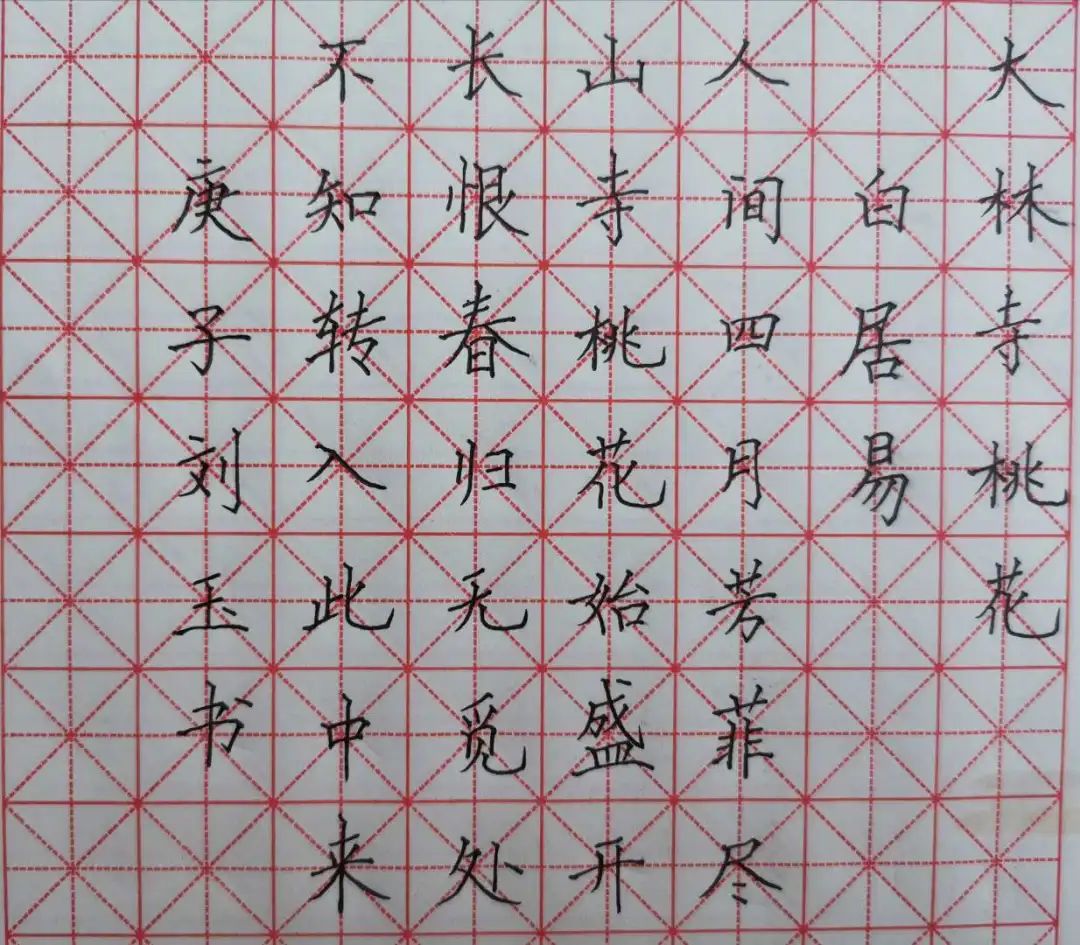 大林寺桃花
白居易
人间四月芳菲尽
山寺桃花始盛开
长恨春归无觅处
不知转入此中来
庚子刘玉书